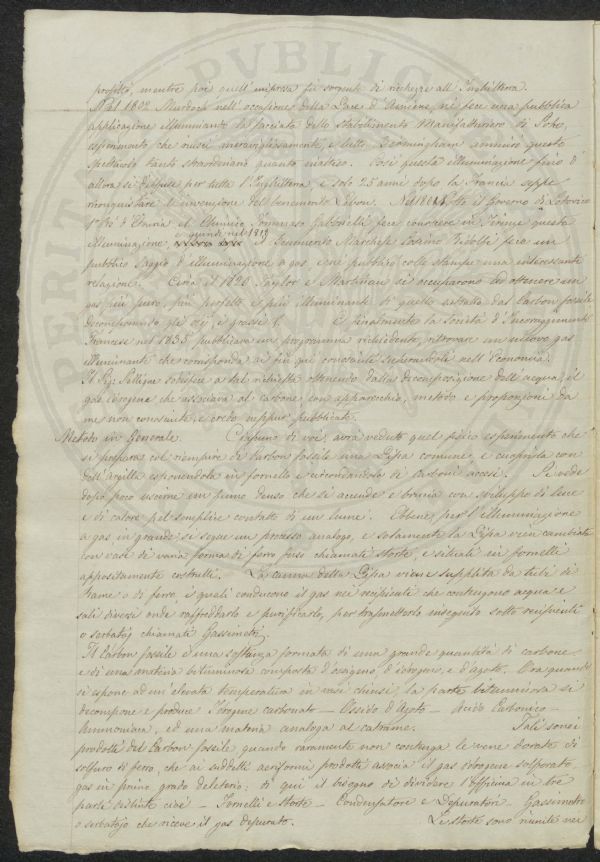 profitto, mentre poi quell'impresa fù sorgente di ricchezze all'Inghilterra.
Nel 1802 Murdoch nell'occasione della Pace d'Amiens, ne fece una pubblica
applicazione illuminando la facciata dello stabilimento Manifatturiero di Soho,
esperimento che riuscì meravigliosamente, e tutto Birmingham ammirò questo
spettacolo tanto straordinario quanto inatteso. Così questa illuminazione fino d'
allora si diffuse per tutta l'Inghilterra, e solo 25 anni dopo la Francia seppe
riconquistare l'invenzione del benemerito Lebon. sotto il Governo di Lodovico
1º Rè d'Etruria il Chimico Tommaso Gabbrielli fece conoscere in Firenze questa
e quindi nel 1819
illuminazione, il Marchese Cosimo Ridolfi fece un
pubblico saggio d'illuminazione a gas, e ne pubblicò colle stampe una interessante
relazione. Circa il 1820 Taylor e Martineau si occuparono ad ottenere un
gas più puro, più perfetto, e più illuminante di quello estratto dal Carbon fossile
decomponendo gli olj, e grassi. E finalmente la Società d'Incoraggimento
Francese nel 1833 pubblicava un programma richiedente, ritrovare un nuovo gas
illuminante che corrisponda ai fin quì conosciuti superandoli nell'Economia.
Il Sig: Selligue sodisfece a tal richiesta ottenendo dalla decomposizione dell'acqua, il
gas idrogene che associava al carbone con apparecchio, metodo e proporzioni da
me non conosciute, e credo neppur pubblicate.
Metodo in Generale. Ciascuno di voi, avrà veduto quel fisico esperimento che
si prepara col riempire di Carbon fossile una Pipa comune, e cuoprirla con
dell'Argilla esponendola in fornello e circondandola di Carboni accesi. Si vede
dopo poco uscirne un fumo denso che si accende e brucia con sviluppo di luce
e di calore pel semplice contatto di un lume. Ebbene, per l'illuminazione
a gas in grande si segue un processo analogo, e solamente la Pipa vien cambiata
con vasi di varia forma di ferro fuso chiamati storte, e situati in fornelli
appositamente costrutti. La canna della Pipa viene supplita da tubi di
rame o di ferro, i quali conducono il gas nei recipienti che contengono acqua e
sali diversi onde raffreddarlo e purificarlo, per trasmetterlo in seguito sotto recipienti
o serbatoj chiamati Gassimetri.
Il Carbon fossile è una sostanza formata di una grande quantità di carbone
e di una materia bituminosa composta d'ossigeno d'idrogene, e d'azoto. Ora quando
si espone ad un'elevata temperatura in vasi chiusi, la parte bituminosa si
decompone e produce Idrogene carbonato - Ossido d'Azoto - Acido Carbonico -
Ammoniaca, ed una materia analoga al catrame. Tali sono i
prodotti del Carbon fossile, quando raramente non contenga le vene dorate di
solfuro di ferro, che ai suddetti aeriformi prodotti associa il gas idrogene solforato
gas in primo grado deleterio: di quì il bisogno di dividere l'Officina in trè
parti distinte cioè - Fornelli e storte - Condensatore e Depuratori - Gassimetro
o serbatojo che riceve il gas depurato. Le storte sono riunite nei